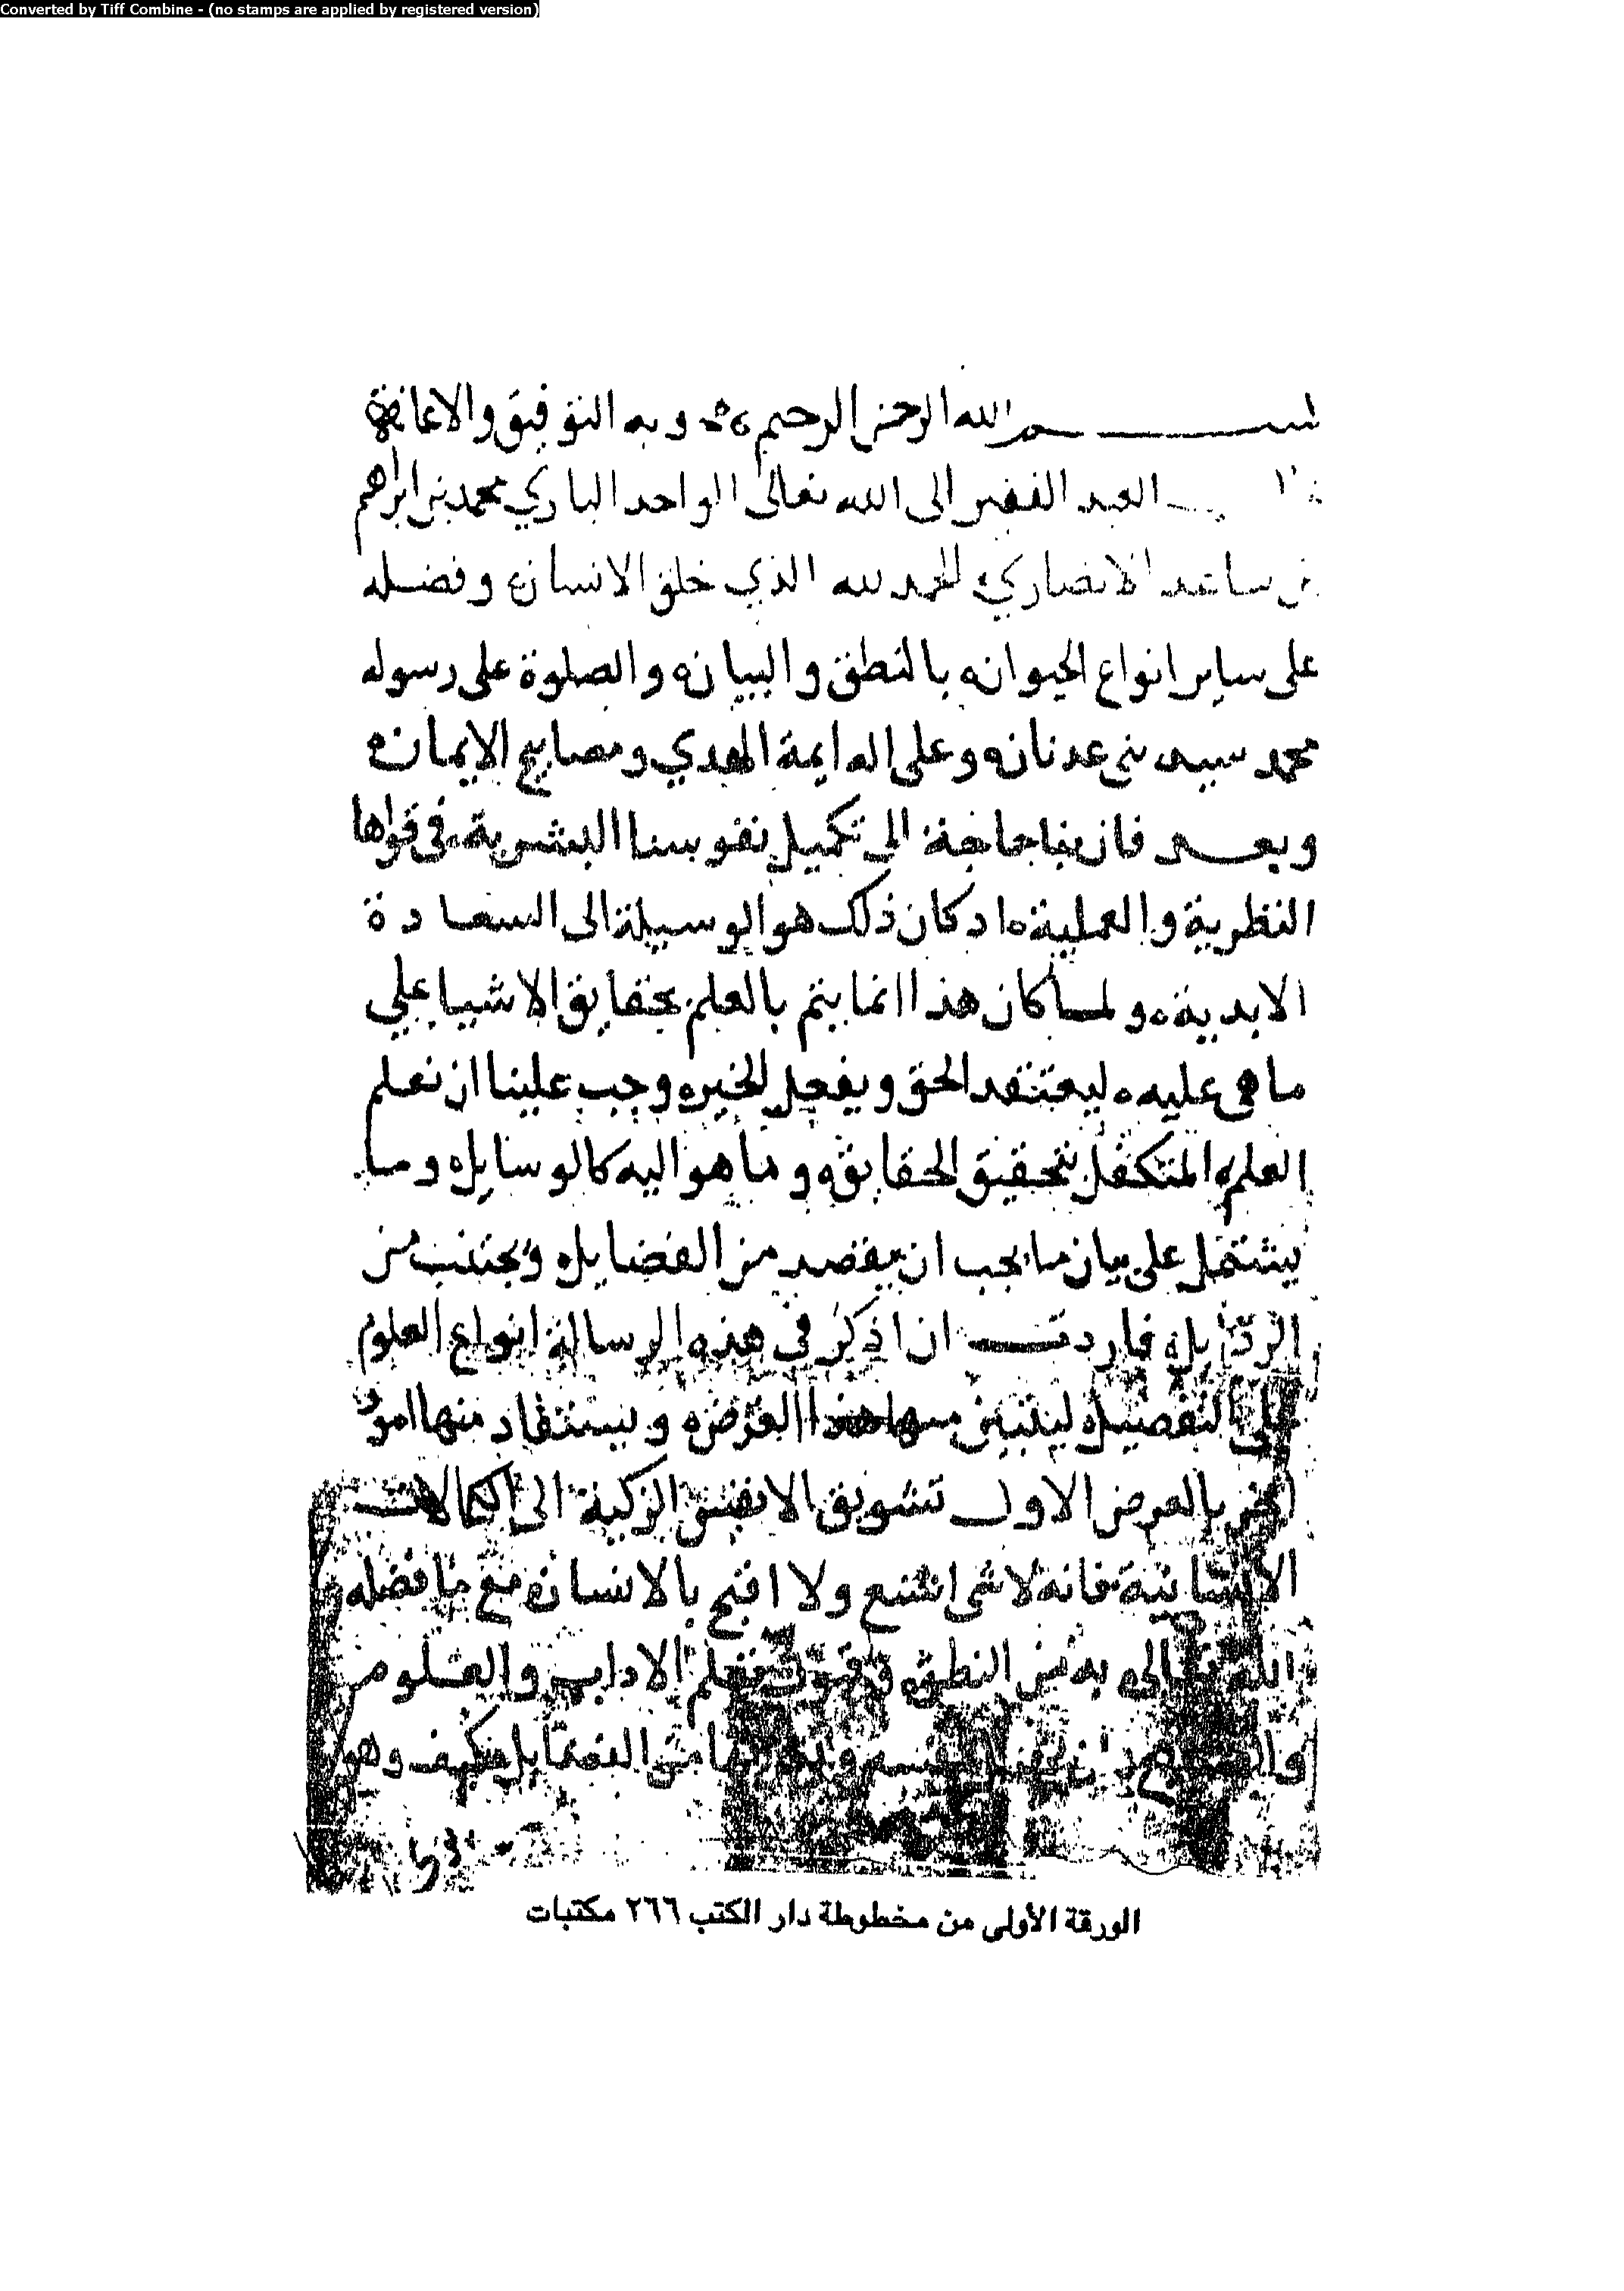 Converted by Tiff Combine - (no stamps are applied by registered version)
بسم الله الرحمن الرحيم وبه التوفيق والاعانة
العبد الفقير الى الله تعالى الواحد الباري محمد بن ابراهم
بن ساعد الانصاري الحمد لله الذي خلق الانسان وفضله
على ساير انواع الحيوان بالنطق والبيان والصلوة على رسوله
محمد سيد بني عدنان وعلى اله ايمة الهدي ومصابيح الايمان
وبعد فان بنا حاجة الى تكميل نفوسنا البشرية في قواها
النظرية والعملية اد كان ذلك هو الوسيلة الى السعادة
الابدية ولما كان هذا انما يتم بالعلم بحقايق الاشيا علي
ما هي عليه ليعتقد الحق ويفعل الخير وجب علينا ان نعلم
العلم المتكفل بتحقيق الحقايق وما هو اليه كالوسايل وما
يشتمل على بيان ما يجب ان يقصد من الفضايل ويجتنب من
الرذايل فاردت ان اذكر في هذه الرسالة انواع العلوم
على التفصيل ليتبين منها هذا الغرض ويستفاد منها امور
اخر بالعرض الاول تشويق الانفس الزكية الى الكمالات
الانسانية فانه لا شي اشنع ولا اقبح بالانسان مع ما فضله
الله تعالى به من النطق وقبول تعلم الاداب والعلوم من
وهو
الورقة الأولى من مخطوطة دار الكتب ٢٦٦ مكتبات